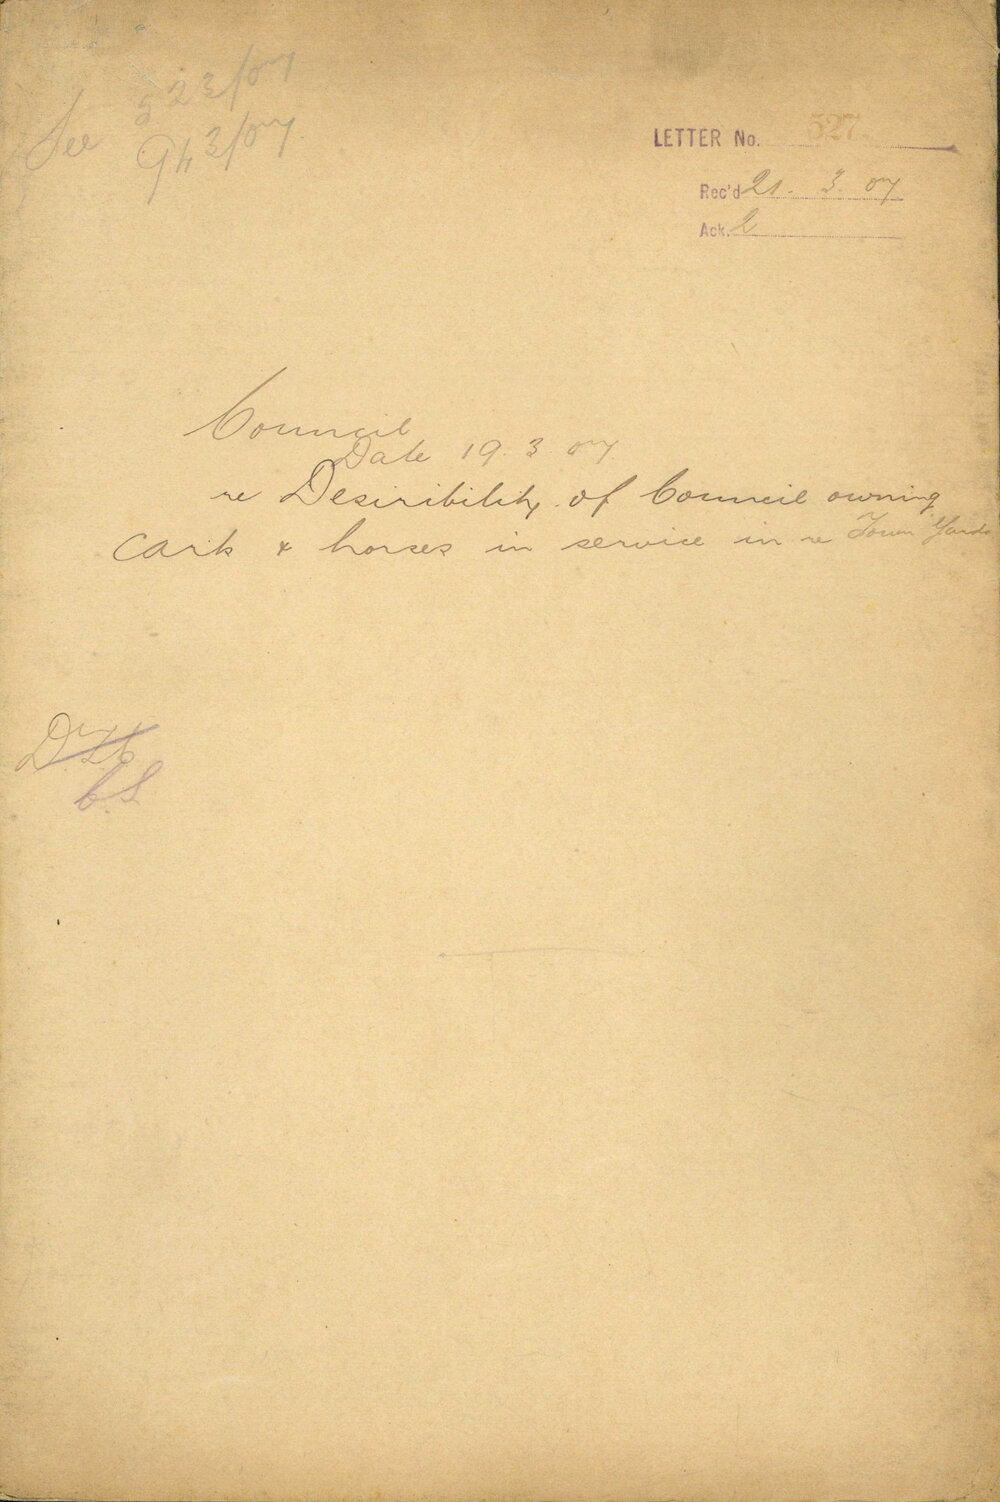 See 523/07
943/07
LETTER No. 527
Rec'd 21. 3. 07
Ack.
Council
Date 19. 3. 07
re Desiribility of Council owning
Carts & horses in service in re Town Yards